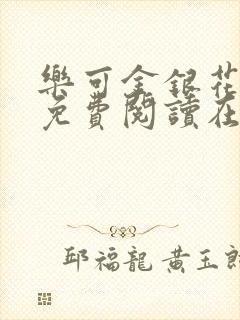 樂可金銀花
免費閱讀在
邱福龍 黃玉郎